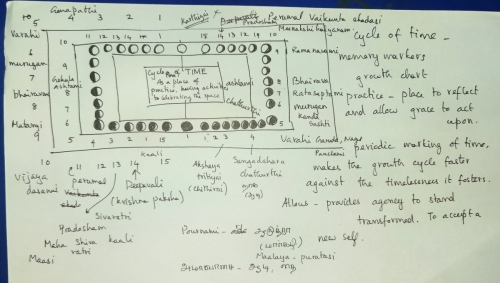 Ganapathi
Karthigai
Pradosham
Perumal Vaikunta ekadasi
10 4 3 2 1
5
Varahi
10 11 12 13 14 1 15 14 13 12 11 10
Meenakshi kalyanam
6
murugan
7
bhairavar
8
Matangi
9
Gokula
Ashtami
9
8
7
6
5
Cycle of TIME
As a place of
practice, healing activities
to celebrating the space
ashtami
chathurthi
9
8
7
6
5
Ramanavami
Bhairavar
Ratasaptami
murugan
Kanda
Sashti
Varahi
Panchami
4 3 2 1 15 1 2 3 4
10 11 12 13 14 15
Vijaya
dasami
perumal
Vaikunda
Kaali
Deepavali
(krishna paksha)
Akshaya
trithyai
(chithirai)
Sangadahara
chathurthi
Sivaratri
Pradosham
Maha Shiva
ratri
Kaali
Maasi
Pournami -
Maalaya - puratasi
cycle of time -
memory markers
growth chart
practice - place to reflect
and allow grace to act
upon.
periodic marking of time,
makes the growth cycle faster
against the timelessness it fosters.
Allows - provides agency to stand
transformed. To accept a
new self.